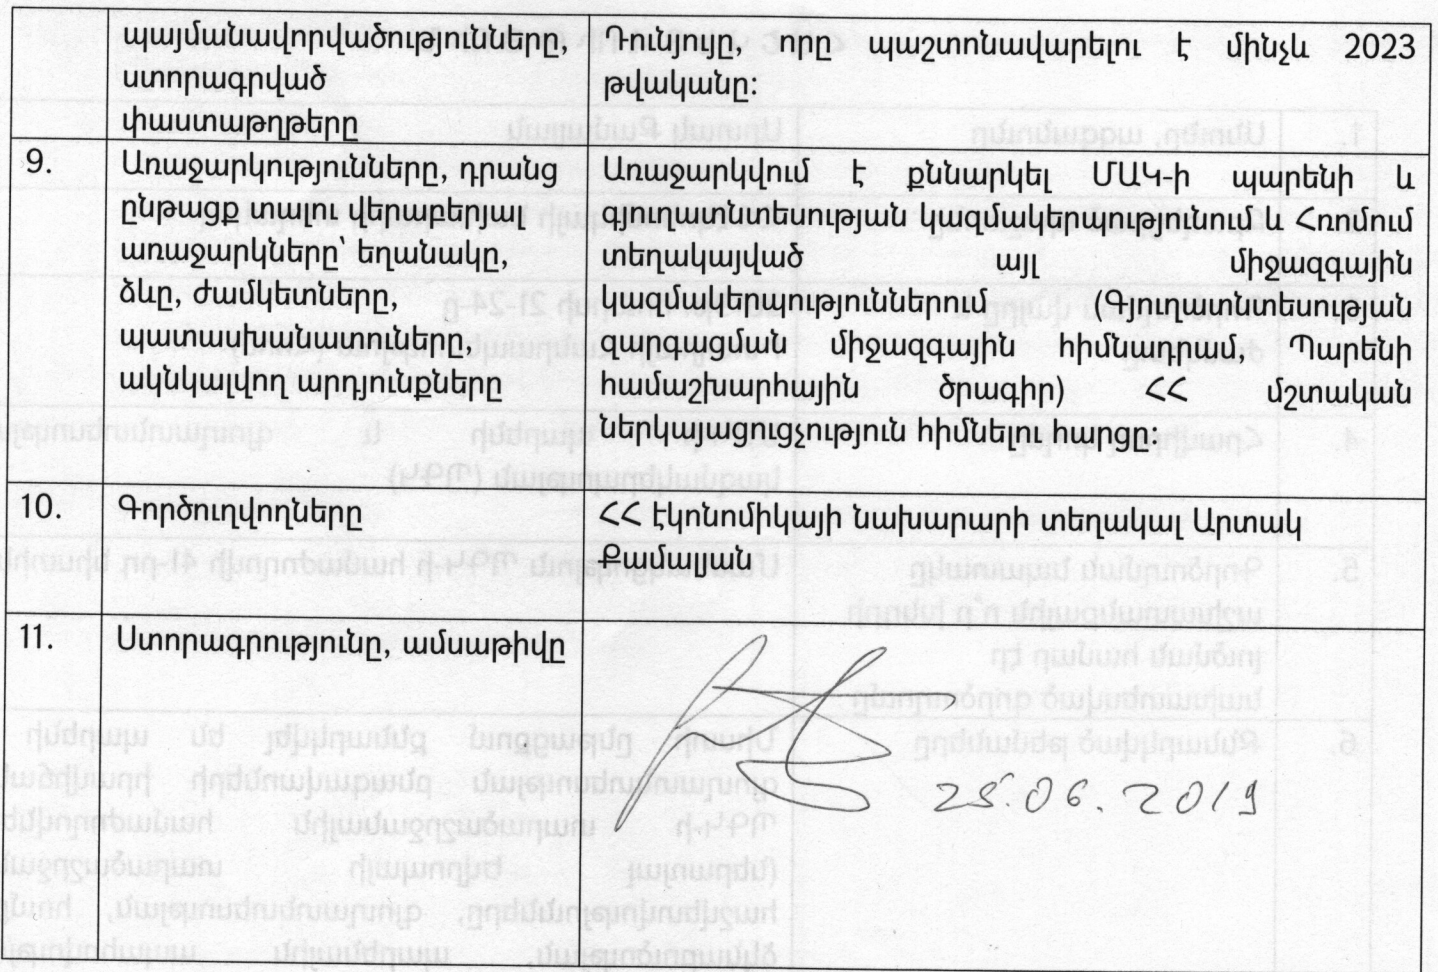 պայմանավորվածությունները,
ստորագրված
փաստաթղթերը
Դունյույը, որը պաշտոնավարելու է մինչև 2023
թվականը:
9.
Առաջարկությունները, դրանց
ընթացք տալու վերաբերյալ
առաջարկները՝ եղանակը,
ձևը, ժամկետները,
պատասխանատուները,
ակնկալվող արդյունքները
Առաջարկվում է քննարկել ՄԱԿ-ի պարենի և
գյուղատնտեսության կազմակերպությունում և Հռոմում
տեղակայված այլ միջազգային
կազմակերպություններում (Գյուղատնտեսության
զարգացման միջազգային հիմնադրամ, Պարենի
համաշխարհային ծրագիր) ՀՀ մշտական
ներկայացուցչություն հիմնելու հարցը:
10.
Գործուղվողները
ՀՀ էկոնոմիկայի նախարարի տեղակալ Արտակ
Քամալյան
11.
Ստորագրությունը, ամսաթիվը
25.06.2019